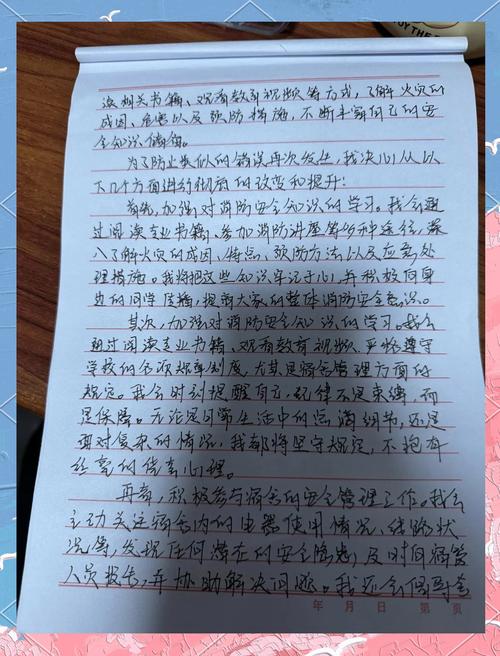 读相关书籍、观看教育视频等方式，了解火灾的
成因、危害以及预防措施，不断丰富自己的安
全知识储备。
为了防止类似的错误再次发生，我决心从以
下几个方面进行彻底的改变和提升：
首先，加强对消防安全知识的学习。我会通
过阅读专业书籍、参加消防讲座等多种途径，深
入了解火灾的成因、特点、预防方法以及应急处
理措施。我将把这些知识牢记于心，并积极向身
边的同学宣播，提高大家的整体消防安全意识。
其次，加强对消防安全知识的学习。我会
通过阅读专业书籍、观看教育视频、严格遵守
学校的各项规章制度，尤其是宿舍管理方面的
规定。我会时刻提醒自己，纪律不是束缚，而
是保障。无论是日常生活中的点滴细节，还是
面对复杂的情况，我都将坚守规定，不抱有
丝毫的侥幸心理。
再者，积极参与宿舍的安全管理工作。我会
主动关注宿舍内的电器使用情况，线路状
况等，发现任何潜在的安全隐患，及时向宿管
人员报告，并协助解决问题。我还会倡导舍
年 月 日 第 页